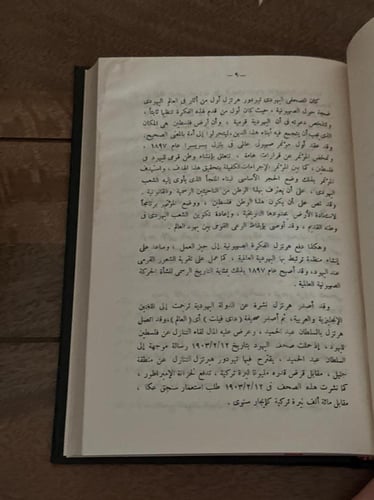 — ٩ —
كان الصحفى اليهودى تيودور هرتزل أول من أثار فى العالم اليهودى
ضجة حول الصهيونية ، حيث كان أول من قدم لهذه الفكرة تنظيما ثابتاً ،
وتتلخص دعوته فى أن اليهودية قومية ، وأن أرض فلسطين هى المكان
الذى يجب أن يتجمع فيه أبناء هذا الدين وليتحولوا إلى أمة بالمعنى الصحيح.
وقد عقد أول مؤتمر صهيونى عالمى فى بازل بسويسرا عام ١٨٩٧
وتمخض المؤتمر عن قرارات هامة ، تتعلق بإنشاء وطن قومى لليهود فى
فلسطين ، كما بين المؤتمر الإجراءات الكفيلة بتحقيق هذا الهدف ، واستهدف
المؤتمر بذلك وضع الحجر الأساسى لبناء الملجأ الذى يأوى إليه الشعب
اليهودى ، على أن يعترف بهذا الوطن من الناحيتين الرسمية والقانونية .
وقد نص على أن يكون هذا الوطن فلسطين ، ووضع المؤتمر برنامجاً
لاستعادة الأرض بحدودها التاريخية ، وإعادة تكوين الشعب اليهودى فى
وطنه القديم ، وقد أوصى بإيقاظ الوعى القومى بين يهود العالم .
وهكذا دفع هرتزل الفكرة الصهيونية إلى حيز العمل ، وساعد على
إنشاء منظمة ترتبط بها اليهودية العالمية ، كما عمل على تقوية الشعور القومى
عند اليهود ، وقد أصبح عام ١٨٩٧ بمثابة التاريخ الرسمى لنشأة الحركة
الصهيونية العالمية .
وقد أصدر هرتزل نشرة عن الدولة اليهودية ترجمت إلى اللغتين
الإنجليزية والعربية، ثم أصدر صحيفة (دى فيلت) أى (العالم)، وقد اتصل
هرتزل بالسلطان عبد الحميد ، وعرض عليه المال لقاء التنازل عن فلسطين
لليهود ، إذ حملت صحف اليهود بتاريخ ١٩٠٣/٢/١٢ رسالة موجهة إلى
السلطان عبد الحميد ، يقترح فيها تيودور هيرتزل التنازل عن منطقة
الجليل ، مقابل قرض قدره مليونا ليرة تركية ، تدفع لخزانة الإمبراطور ،
كما نشرت هذه الصحف فى ١٩٠٣/٢/١٢ طلب استعمار سنجق عكا ،
مقابل مائة ألف ليرة تركية كإيجار سنوى .